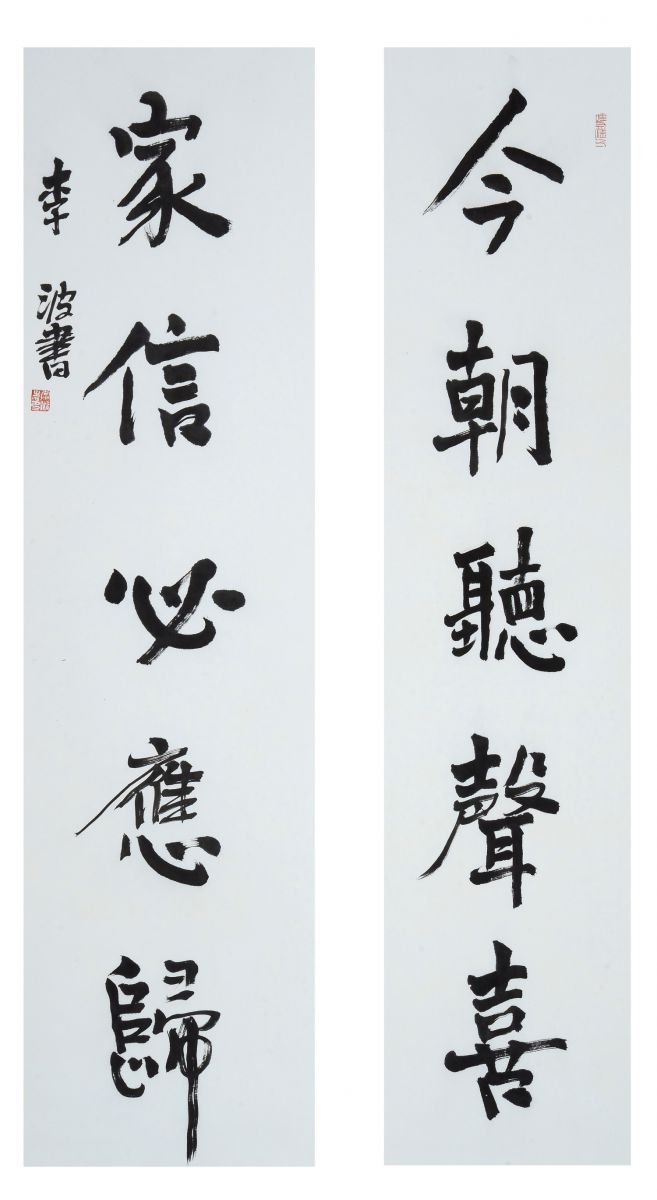 今朝聽聲喜
家信必應歸
李波書